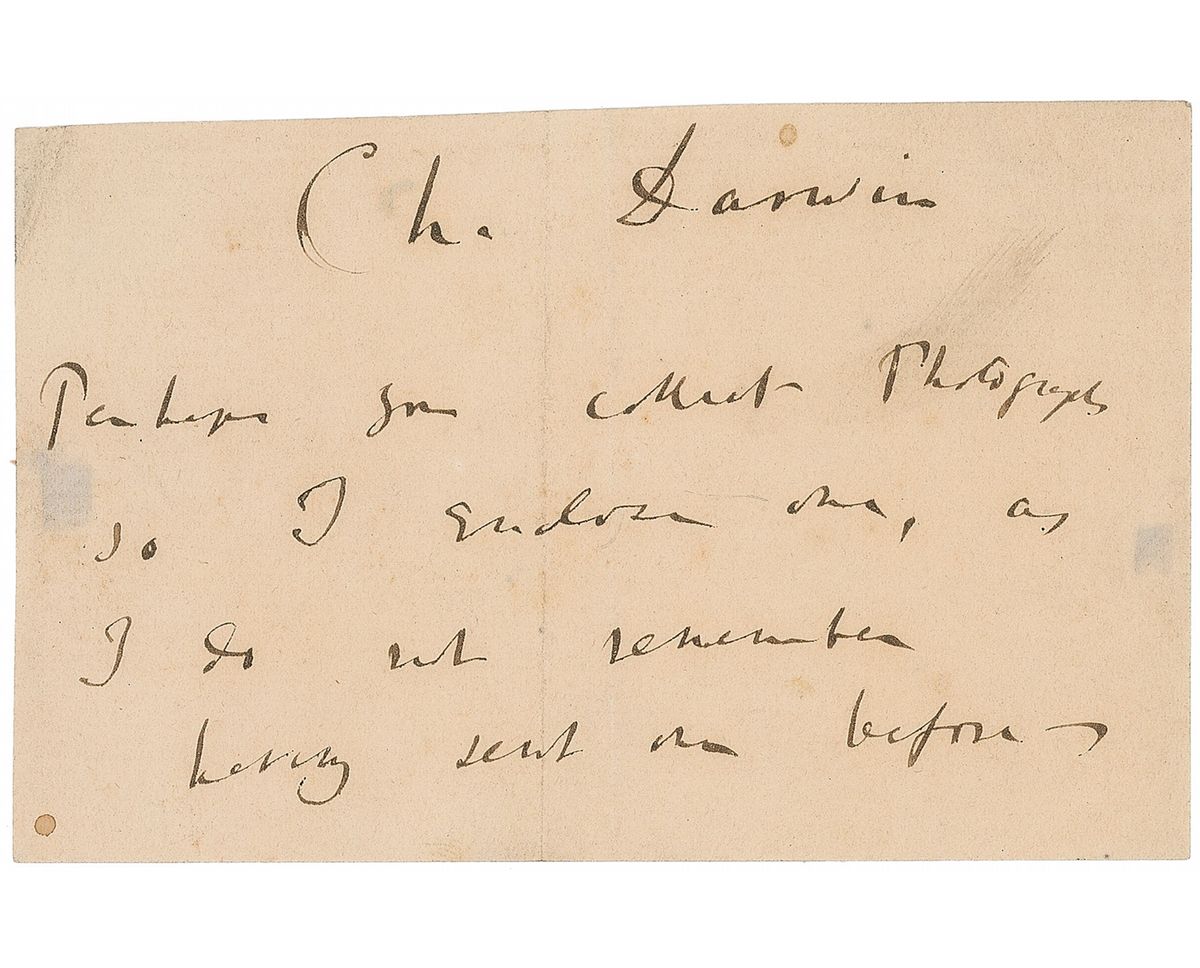 Ch. Darwin
Perhaps you collect Photographs
so I enclose one, as
I do not remember
having sent one before —